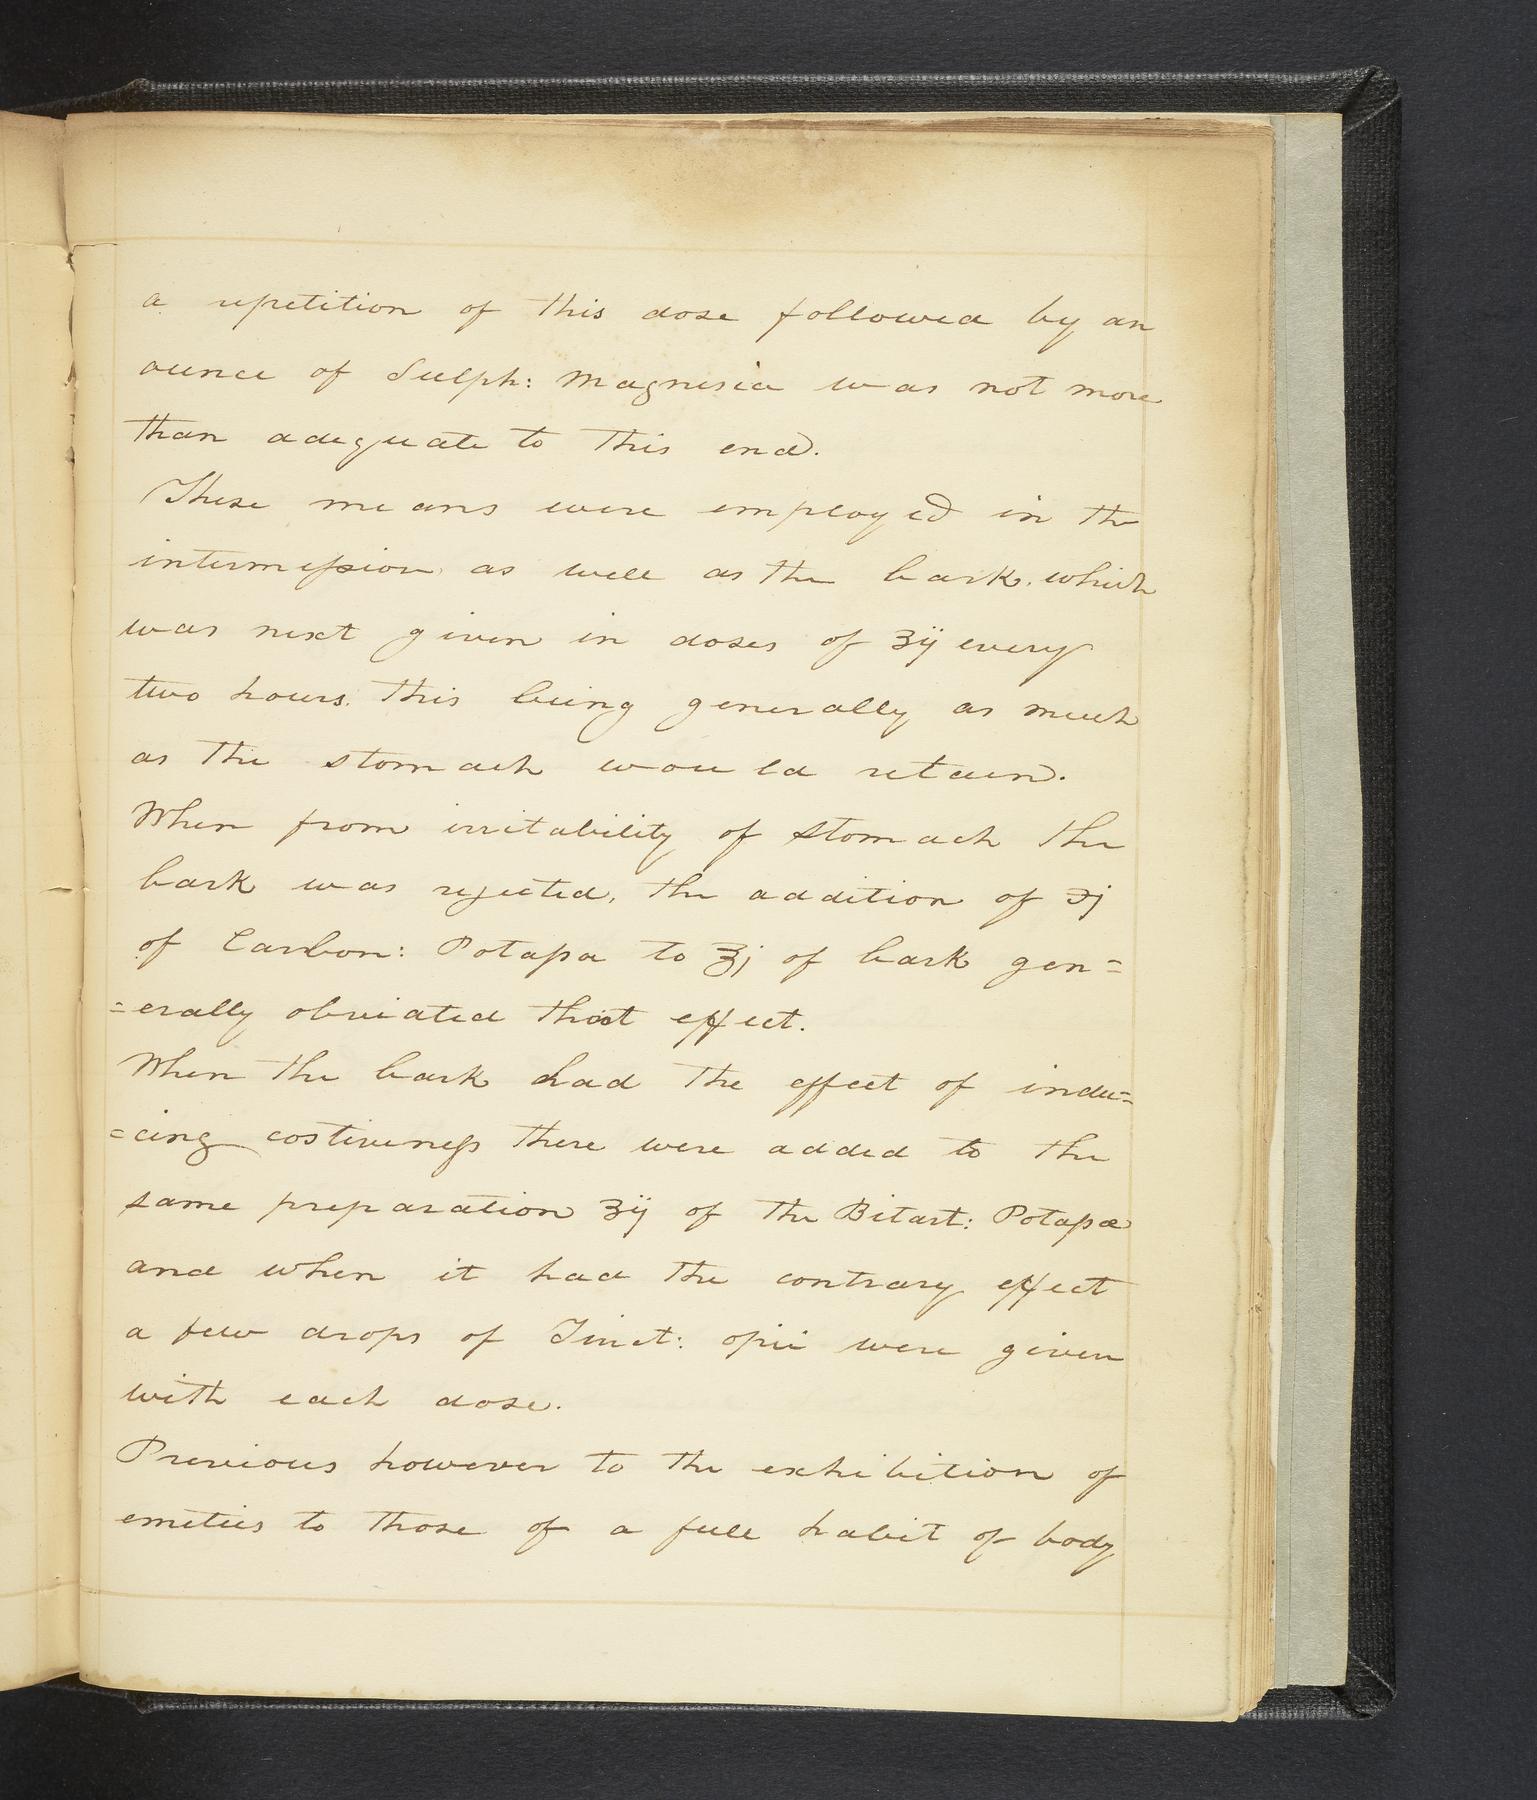 a repetition of this dose followed by an
ounce of Sulph: Magnesia was not more
than adequate to this end.
These means were employed in the
intermission as well as the bark. which
was next given in doses of ʒij every
two hours. this being generally as much
as the stomach would retain.
When from irritability of stomach the
bark was rejected, the addition of ℈j
of Carbon: Potassa to ℥j of bark gen=
=erally obviated that effect.
When the bark had the effect of indu=
=cing costiveness there were added to the
same preparation ʒij of the Bitart: Potassæ
and when it had the contrary effect
a few drops of Tinct: opii were given
with each dose.
Previous however to the exhibition of
emetics to those of a full habit of body